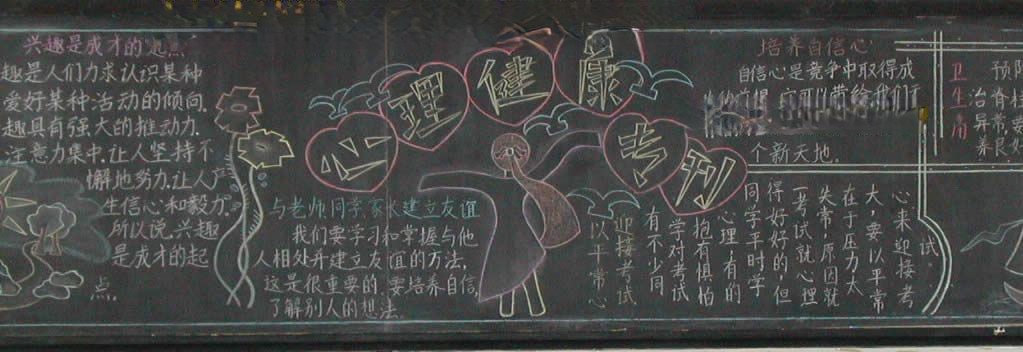 兴趣是成才的起点
趣是人们力求认识某种
爱好某种活动的倾向.
趣具有强大的推动力.
注意力集中.让人坚持不
懈地努力.让人产
生信心和毅力.
所以说.兴趣
是成才的起
点.
心理健康专刊
与老师同学家长建立友谊
我们要学习和掌握与他
人相处并建立友谊的方法,
这是很重要的.要培养自信,
了解别人的想法.
以平常心
迎接考试
有不少同
学对考试
抱有惧怕
心理.有的
同学平时学
得好好的.但
一考试就心理
失常.原因就
在于压力太
大,要以平常
心来迎接考
试.
培养自信心
自信心是竞争中取得成
它可以带给我们
个新天地.
卫生角
预防
治脊柱
异常,要
养良好